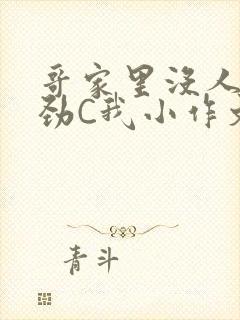 哥家里没人
劲C我小作文
青斗